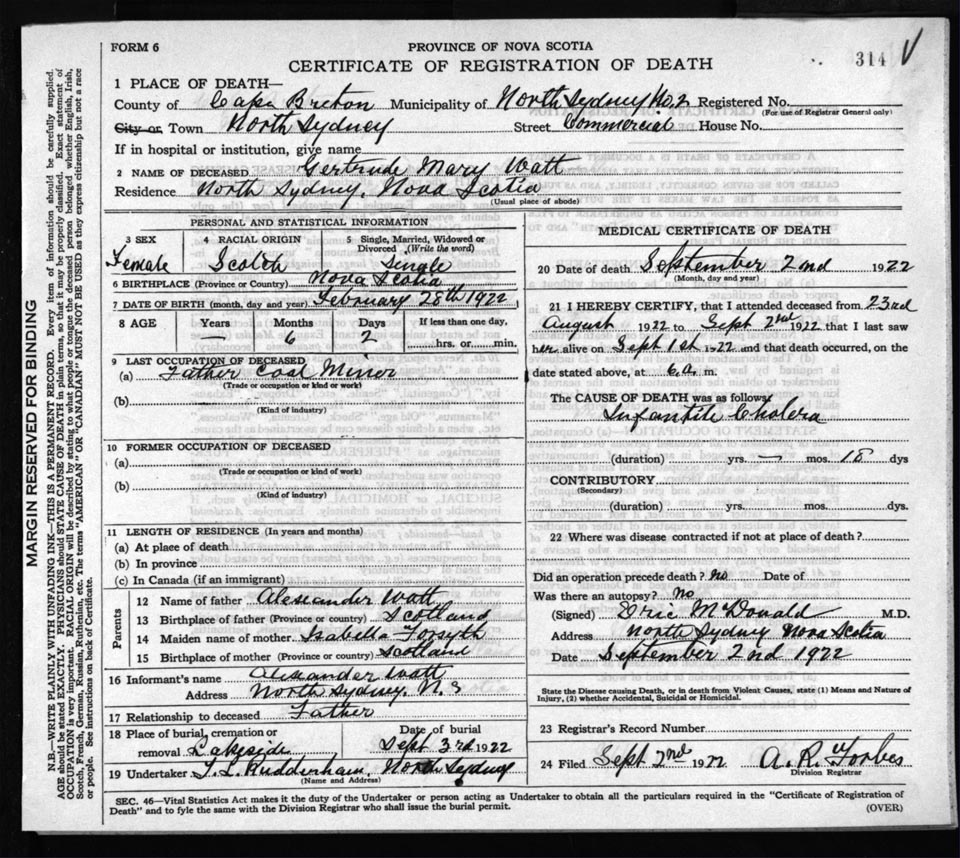 FORM 6
PROVINCE OF NOVA SCOTIA
CERTIFICATE OF REGISTRATION OF DEATH
314 V
1 PLACE OF DEATH—
County of Cape Breton Municipality of North Sydney No. 2 Registered No.
(For use of Registrar General only)
City or Town North Sydney Street Commercial House No.
If in hospital or institution, give name
2 NAME OF DECEASED Gertrude Mary Watt
Residence North Sydney, Nova Scotia
(Usual place of abode)
PERSONAL AND STATISTICAL INFORMATION
3 SEX 4 RACIAL ORIGIN 5 Single, Married, Widowed or Divorced (Write the word)
Female Scotch Single
6 BIRTHPLACE (Province or Country) Nova Scotia
7 DATE OF BIRTH (month, day and year) February 28th 1922
8 AGE Years Months Days If less than one day,
— 6 2 hrs. or min.
9 LAST OCCUPATION OF DECEASED
(a) Father Coal Minor
(Trade or occupation or kind or work)
(b)
(Kind of industry)
10 FORMER OCCUPATION OF DECEASED
(a)
(Trade or occupation or kind of work)
(b)
(Kind of industry)
11 LENGTH OF RESIDENCE (In years and months)
(a) At place of death
(b) In province
(c) In Canada (if an immigrant)
Parents
12 Name of father Alexander Watt
13 Birthplace of father (Province or country) Scotland
14 Maiden name of mother Isabella Forsyth
15 Birthplace of mother (Province or country) Scotland
16 Informant's name Alexander Watt
Address North Sydney, N.S
17 Relationship to deceased Father
18 Place of burial, cremation or Date of burial
removal Lakeside Sept 3rd 1922
19 Undertaker T. L. Rudderham, North Sydney
(Name and Address)
MEDICAL CERTIFICATE OF DEATH
20 Date of death September 2nd 1922
(Month, day and year)
21 I HEREBY CERTIFY, that I attended deceased from 23rd
August 1922 to Sept 2nd 1922 that I last saw
her alive on Sept 1st 1922 and that death occurred, on the
date stated above, at 6 a. m.
The CAUSE OF DEATH was as follows
Infantile Cholera
(duration) yrs. — mos. 10 dys
CONTRIBUTORY
(Secondary)
(duration) yrs. mos. dys.
22 Where was disease contracted if not at place of death?
Did an operation precede death? No Date of
Was there an autopsy? No
(Signed) Eric McDonald M.D.
Address North Sydney Nova Scotia
Date September 2nd 1922
State the Disease causing Death, or in death from Violent Causes, state (1) Means and Nature of
Injury, (2) whether Accidental, Suicidal or Homicidal.
23 Registrar's Record Number
24 Filed Sept 2nd 1922 A. R. Forbes
Division Registrar
SEC. 46—Vital Statistics Act makes it the duty of the Undertaker or person acting as Undertaker to obtain all the particulars required in the "Certificate of Registration of
Death" and to fyle the same with the Division Registrar who shall issue the burial permit.
(OVER)
MARGIN RESERVED FOR BINDING
N.B.—WRITE PLAINLY WITH UNFADING INK—THIS IS A PERMANENT RECORD. Every item of information should be carefully supplied.
AGE should be stated EXACTLY. PHYSICIANS should STATE CAUSE OF DEATH in plain terms, so that it may be properly classified. Exact statement of
OCCUPATION is very important. RACIAL ORIGIN will be described by stating to what people or tongue the deceased person belonged whether English, Irish,
Scotch, French, German, Russian, Ruthenian, etc. The terms "AMERICAN" or "CANADIAN" MUST NOT BE USED as they express citizenship but not a race
or people. See instructions on back of Certificate.